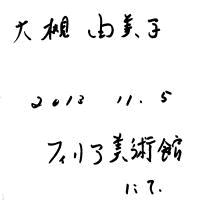 大槻 由美子
2013 11. 5
フィリア美術館
にて.